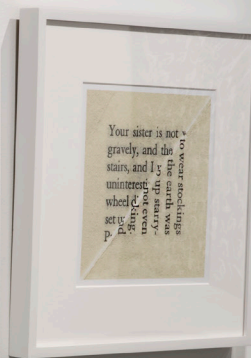 Your sister is not
gravely, and the
stairs, and I
uninterest
wheel
set
to wear stockings
the earth was
up starry-
not even
king.